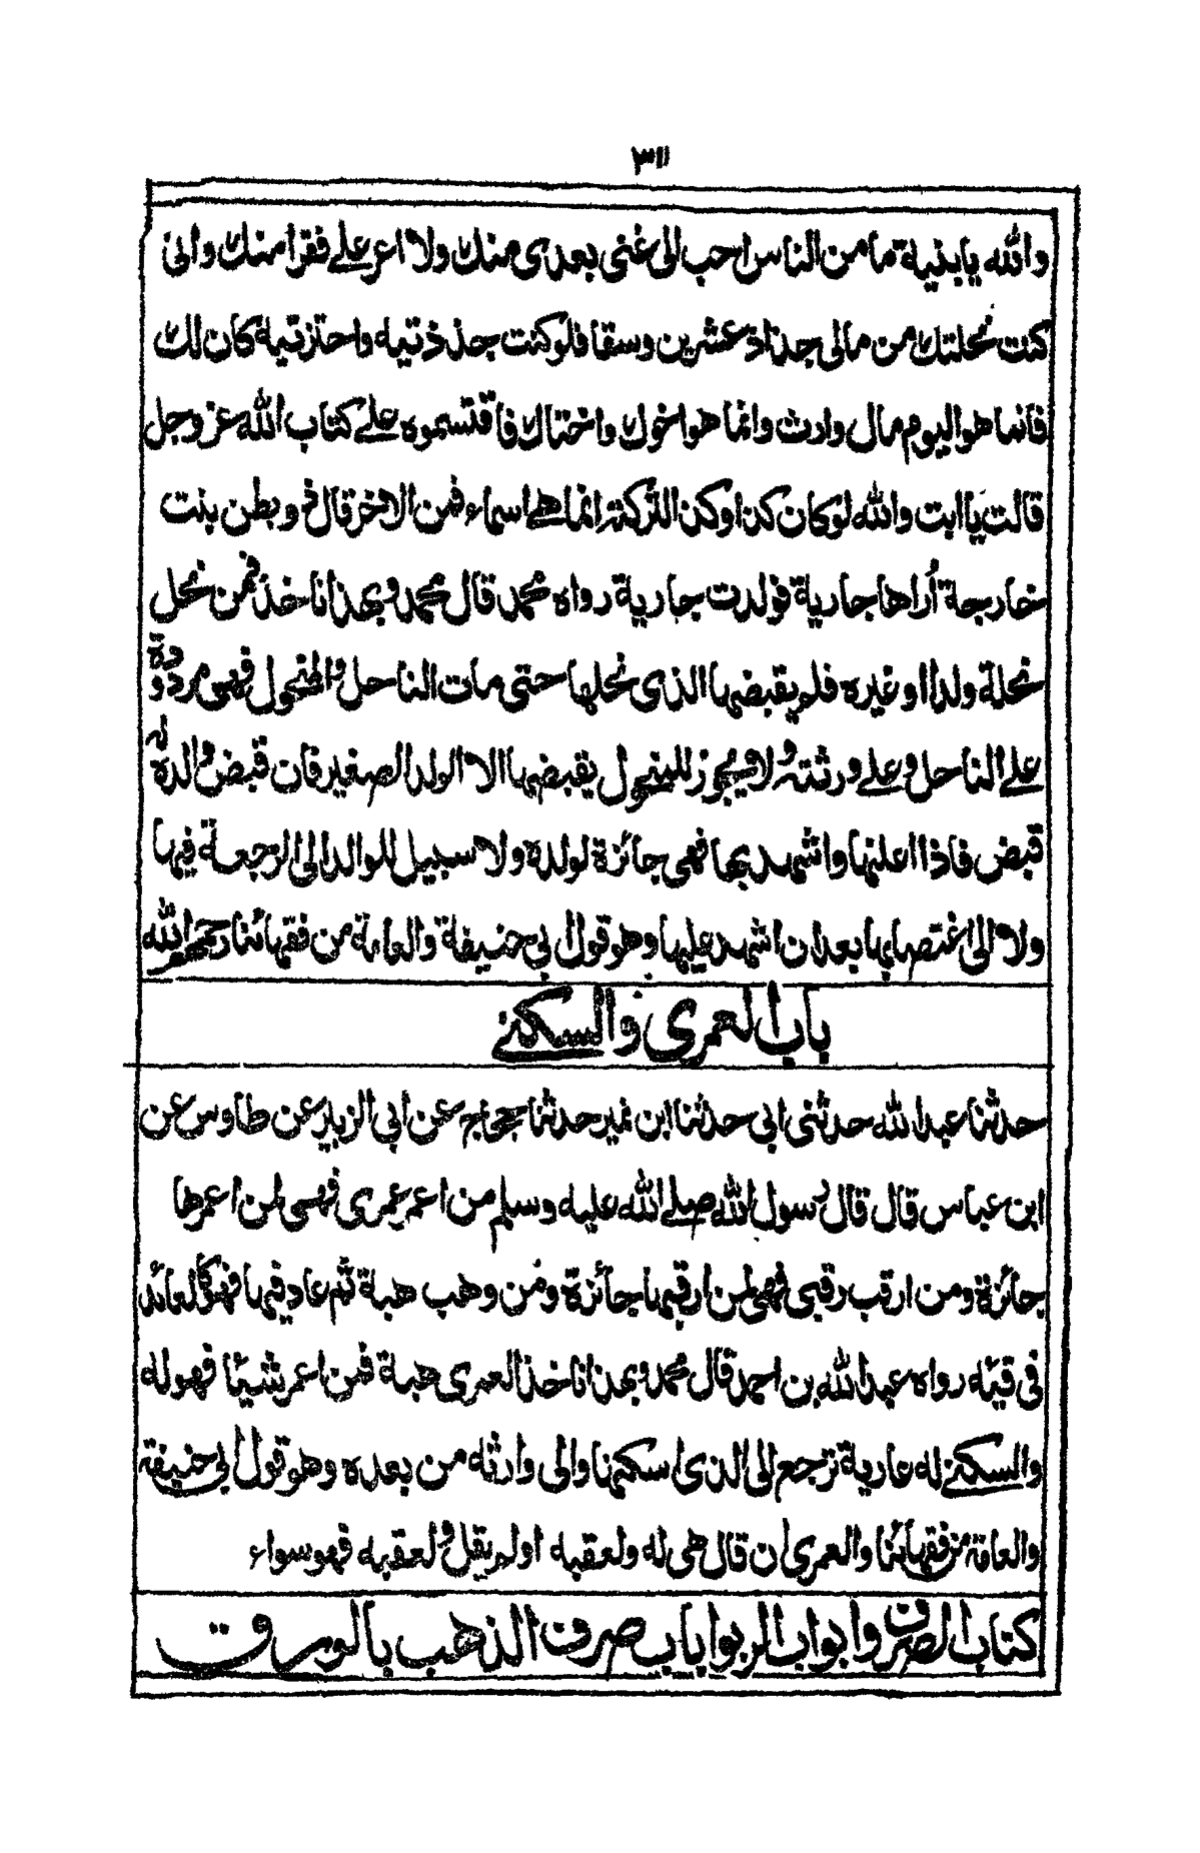 ٣١١
والله يا بنية ما من الناس احب الى غنى بعدى منك ولا اعز على فقرا منك وانى
كنت نحلتك من مالى جذاذ عشرين وسقا فلو كنت جذذتيه واحتزتيه كان لك
فانما هو اليوم مال وارث وانما هو اخوك واختاك فاقتسموه على كتاب الله عز وجل
قالت يا ابت والله لو كان كذا وكذا لتركته انما هى اسماء فمن الاخر قال ذو بطن بنت
خارجة أراها جارية فولدت جارية رواه محمد قال محمد وبهذا ناخذ فمن نحل
نحلة ولدا او غيره فلم يقبضها الذى نحلها حتى مات الناحل والمنحول فهى مردودة
على الناحل وعلى ورثته ولا يجوز للمنحول يقبضها الا الولد الصغير فان قبض والده له
قبض فاذا اعلنها واشهد بها فهى جائزة لولده ولا سبيل للوالد الى الرجعة فيها
ولا الى اغتصابها بعد ان اشهد عليها وهو قول ابى حنيفة والعامة من فقهائنا رحمهم الله
باب العمرى والسكنى
حدثنا عبد الله حدثنى ابى حدثنا ابن نمير حدثنا حجاج عن ابى الزبير عن طاوس عن
ابن عباس قال قال رسول الله صلى الله عليه وسلم من اعمر عمرى فهى لمن اعمرها
جائزة ومن ارقب رقبى فهى لمن ارقبها جائزة ومن وهب هبة ثم عاد فيها فهو كالعائد
فى قيئه رواه عبد الله بن احمد قال محمد وبهذا ناخذ العمرى هبة فمن اعمر شيئا فهو له
والسكنى له عارية ترجع الى الذى اسكنها والى وارثه من بعده وهو قول ابى حنيفة
والعامة من فقهائنا والعمرى ان قال هى له ولعقبه او لم يقل ولعقبه فهو سواء
كتاب الصرف وابواب الربوا باب صرف الذهب بالورق